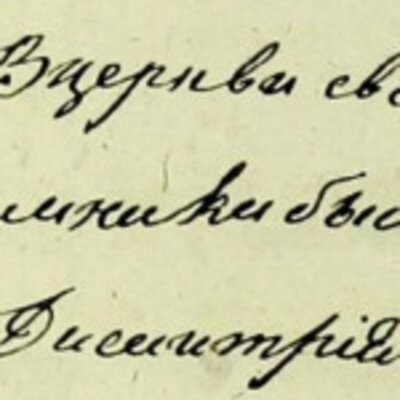 В церкви св
мники бы
Димитрій